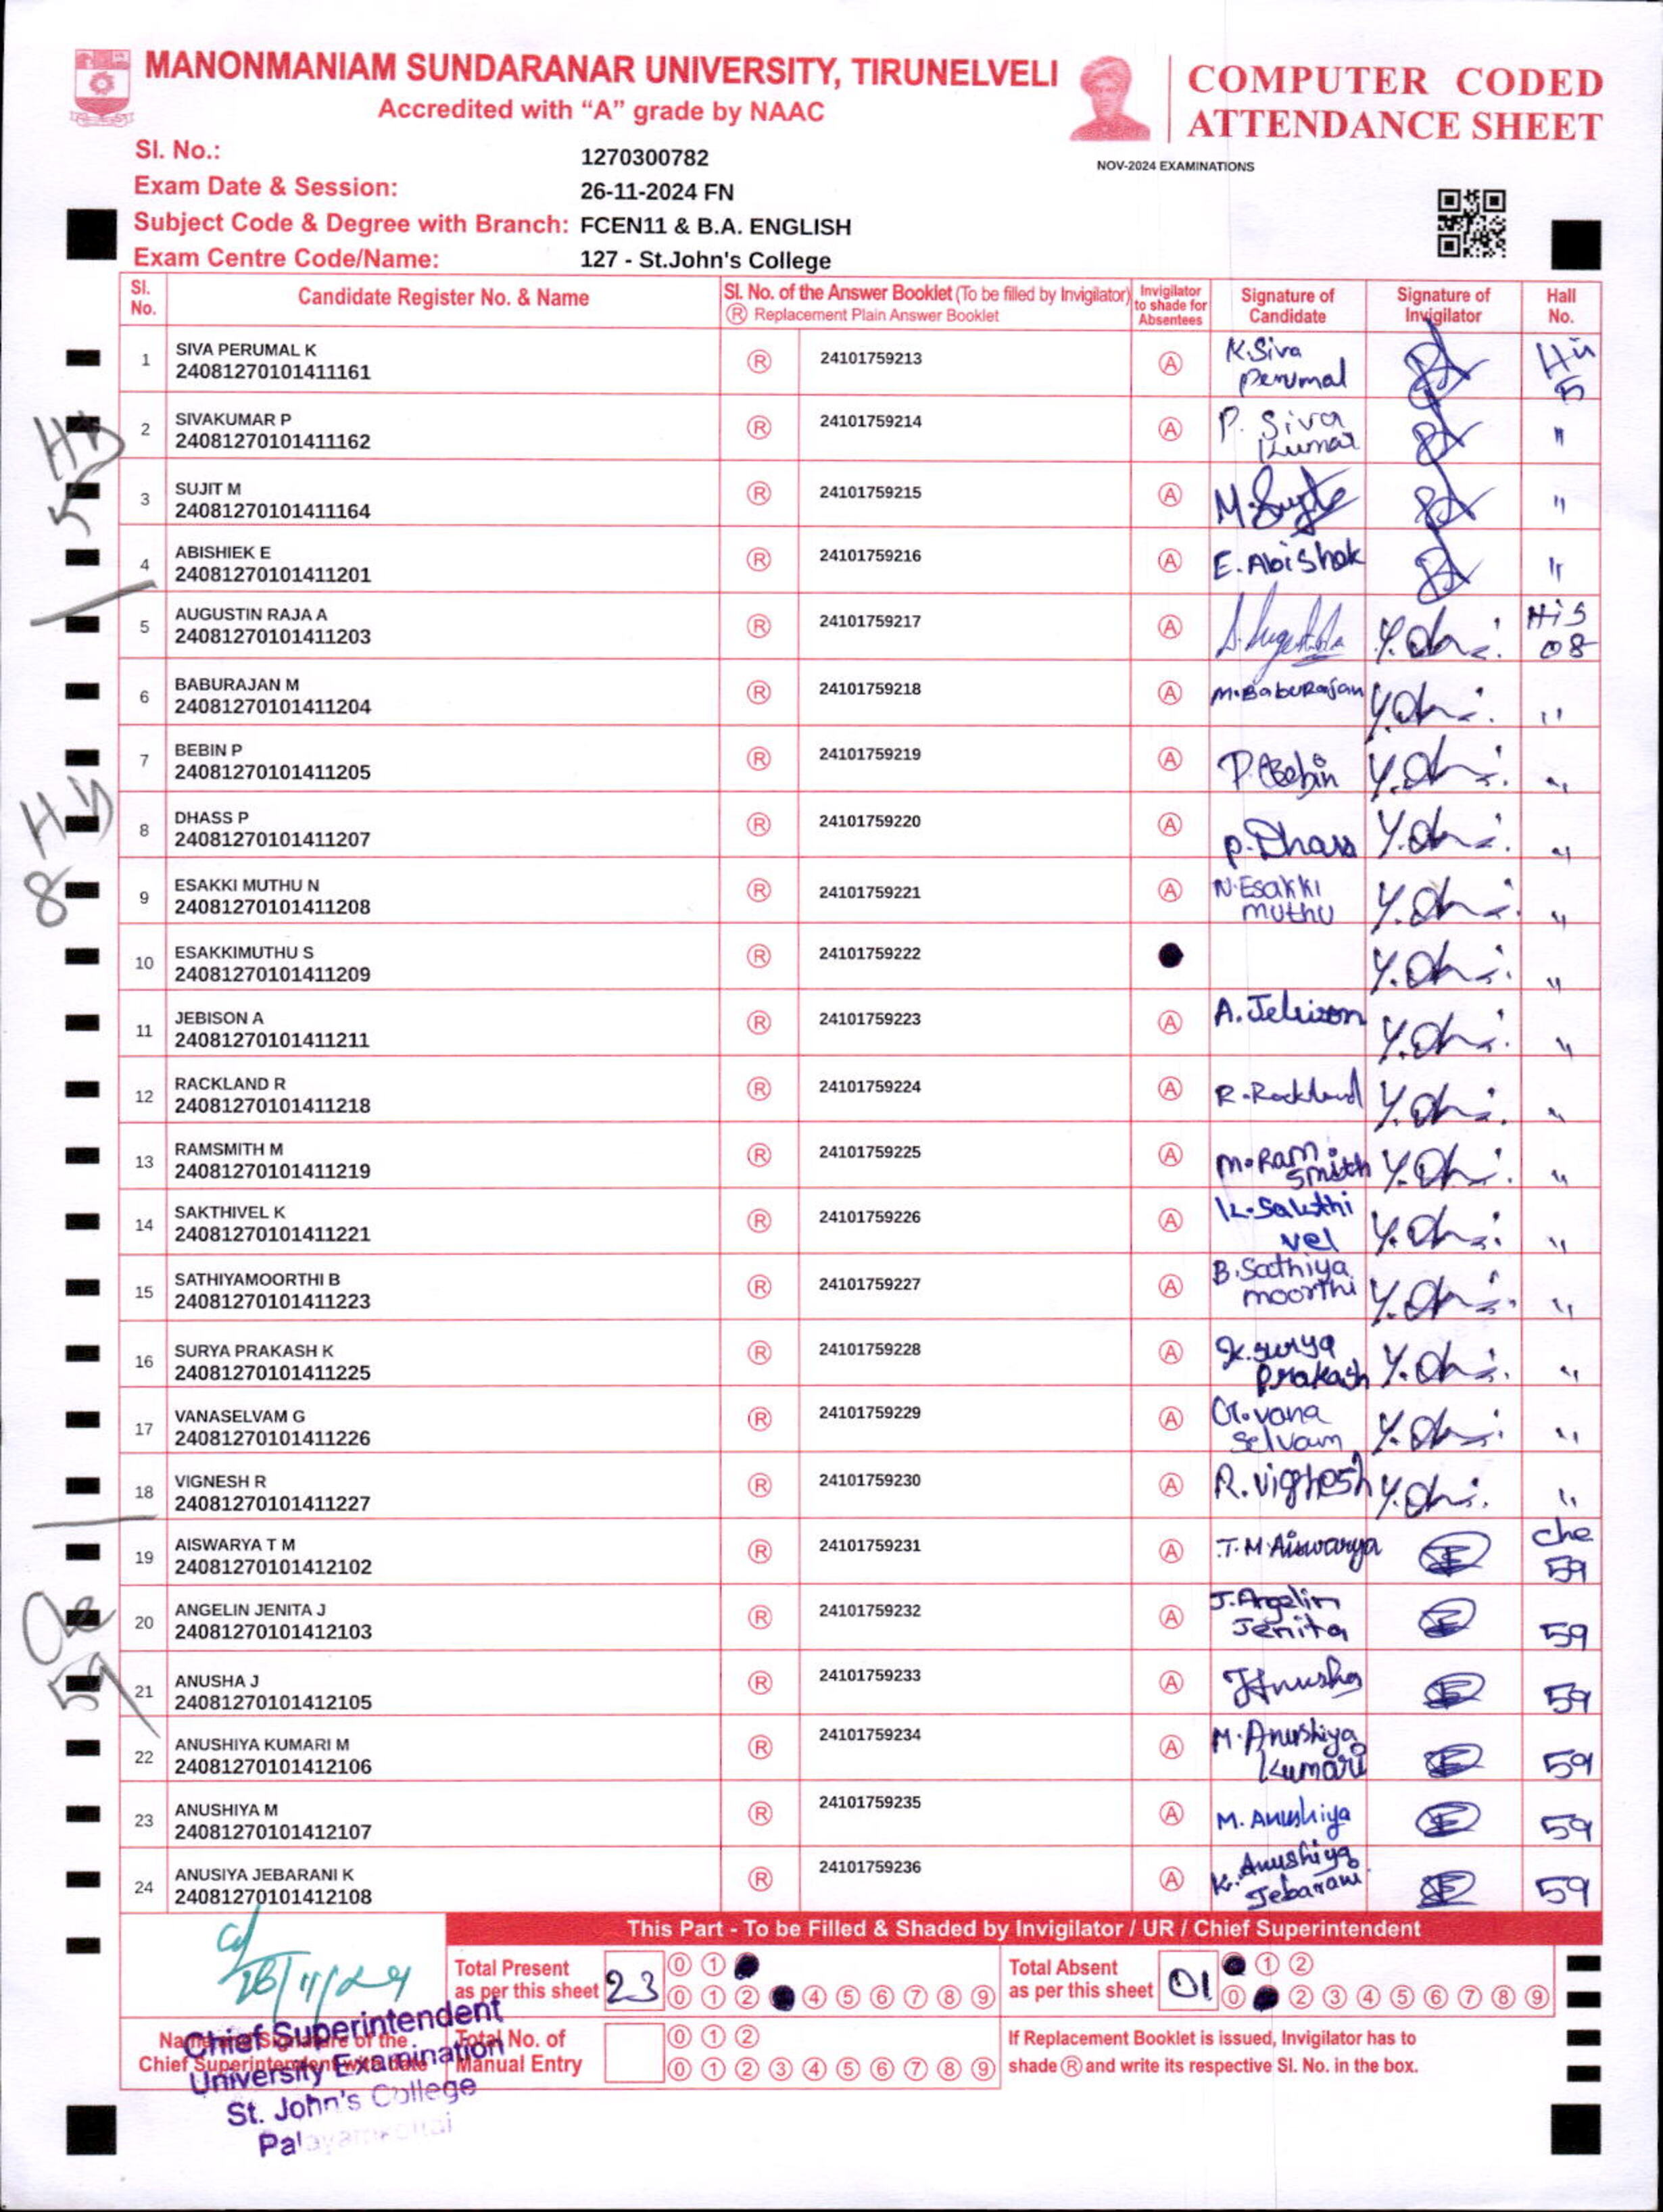 MANONMANIAM SUNDARANAR UNIVERSITY, TIRUNELVELI
Accredited with “A” grade by NAAC
COMPUTER CODED
ATTENDANCE SHEET
NOV-2024 EXAMINATIONS
Sl. No.: 1270300782
Exam Date & Session: 26-11-2024 FN
Subject Code & Degree with Branch: FCEN11 & B.A. ENGLISH
Exam Centre Code/Name: 127 - St.John's College
Sl. No. Candidate Register No. & Name Sl. No. of the Answer Booklet (To be filled by Invigilator) Ⓡ Replacement Plain Answer Booklet Invigilator to shade for Absentees Signature of Candidate Signature of Invigilator Hall No.
1 SIVA PERUMAL K Ⓡ 24101759213 Ⓐ K.Siva perumal
24081270101411161 5
2 SIVAKUMAR P Ⓡ 24101759214 Ⓐ P. Siva Kumar "
24081270101411162
3 SUJIT M Ⓡ 24101759215 Ⓐ "
24081270101411164
4 ABISHIEK E Ⓡ 24101759216 Ⓐ E. Abishek "
24081270101411201
5 AUGUSTIN RAJA A Ⓡ 24101759217 Ⓐ His 08
24081270101411203
6 BABURAJAN M Ⓡ 24101759218 Ⓐ M.BabuRajan "
24081270101411204
7 BEBIN P Ⓡ 24101759219 Ⓐ P.Bebin "
24081270101411205
8 DHASS P Ⓡ 24101759220 Ⓐ P.Dhass "
24081270101411207
9 ESAKKI MUTHU N Ⓡ 24101759221 Ⓐ N.Esakki muthu "
24081270101411208
10 ESAKKIMUTHU S Ⓡ 24101759222 "
24081270101411209
11 JEBISON A Ⓡ 24101759223 Ⓐ A.Jebison "
24081270101411211
12 RACKLAND R Ⓡ 24101759224 Ⓐ R.Rackland "
24081270101411218
13 RAMSMITH M Ⓡ 24101759225 Ⓐ M.Ram smith "
24081270101411219
14 SAKTHIVEL K Ⓡ 24101759226 Ⓐ K.Sakthi vel "
24081270101411221
15 SATHIYAMOORTHI B Ⓡ 24101759227 Ⓐ B.Sathiya moorthi "
24081270101411223
16 SURYA PRAKASH K Ⓡ 24101759228 Ⓐ K.surya prakash "
24081270101411225
17 VANASELVAM G Ⓡ 24101759229 Ⓐ G.vana selvam "
24081270101411226
18 VIGNESH R Ⓡ 24101759230 Ⓐ R.Vignesh "
24081270101411227
19 AISWARYA T M Ⓡ 24101759231 Ⓐ T.M.Aiswarya che 59
24081270101412102
20 ANGELIN JENITA J Ⓡ 24101759232 Ⓐ J.Angelin Jenita 59
24081270101412103
21 ANUSHA J Ⓡ 24101759233 Ⓐ J Anusha 59
24081270101412105
22 ANUSHIYA KUMARI M Ⓡ 24101759234 Ⓐ M.Anushiya Kumari 59
24081270101412106
23 ANUSHIYA M Ⓡ 24101759235 Ⓐ M. Anushiya 59
24081270101412107
24 ANUSIYA JEBARANI K Ⓡ 24101759236 Ⓐ K. Anushiya Jebarani 59
24081270101412108
5
8
59
This Part - To be Filled & Shaded by Invigilator / UR / Chief Superintendent
26/11/24
Total Present as per this sheet 23 0 1
0 1 2 4 5 6 7 8 9
Total Absent as per this sheet 01 1 2
0 2 3 4 5 6 7 8 9
Name and Signature of the
Chief Superintendent with date
Total No. of Manual Entry 0 1 2
0 1 2 3 4 5 6 7 8 9
If Replacement Booklet is issued, Invigilator has to
shade Ⓡ and write its respective Sl. No. in the box.
Chief Superintendent
University Examination
St. John's College
Palayamkottai